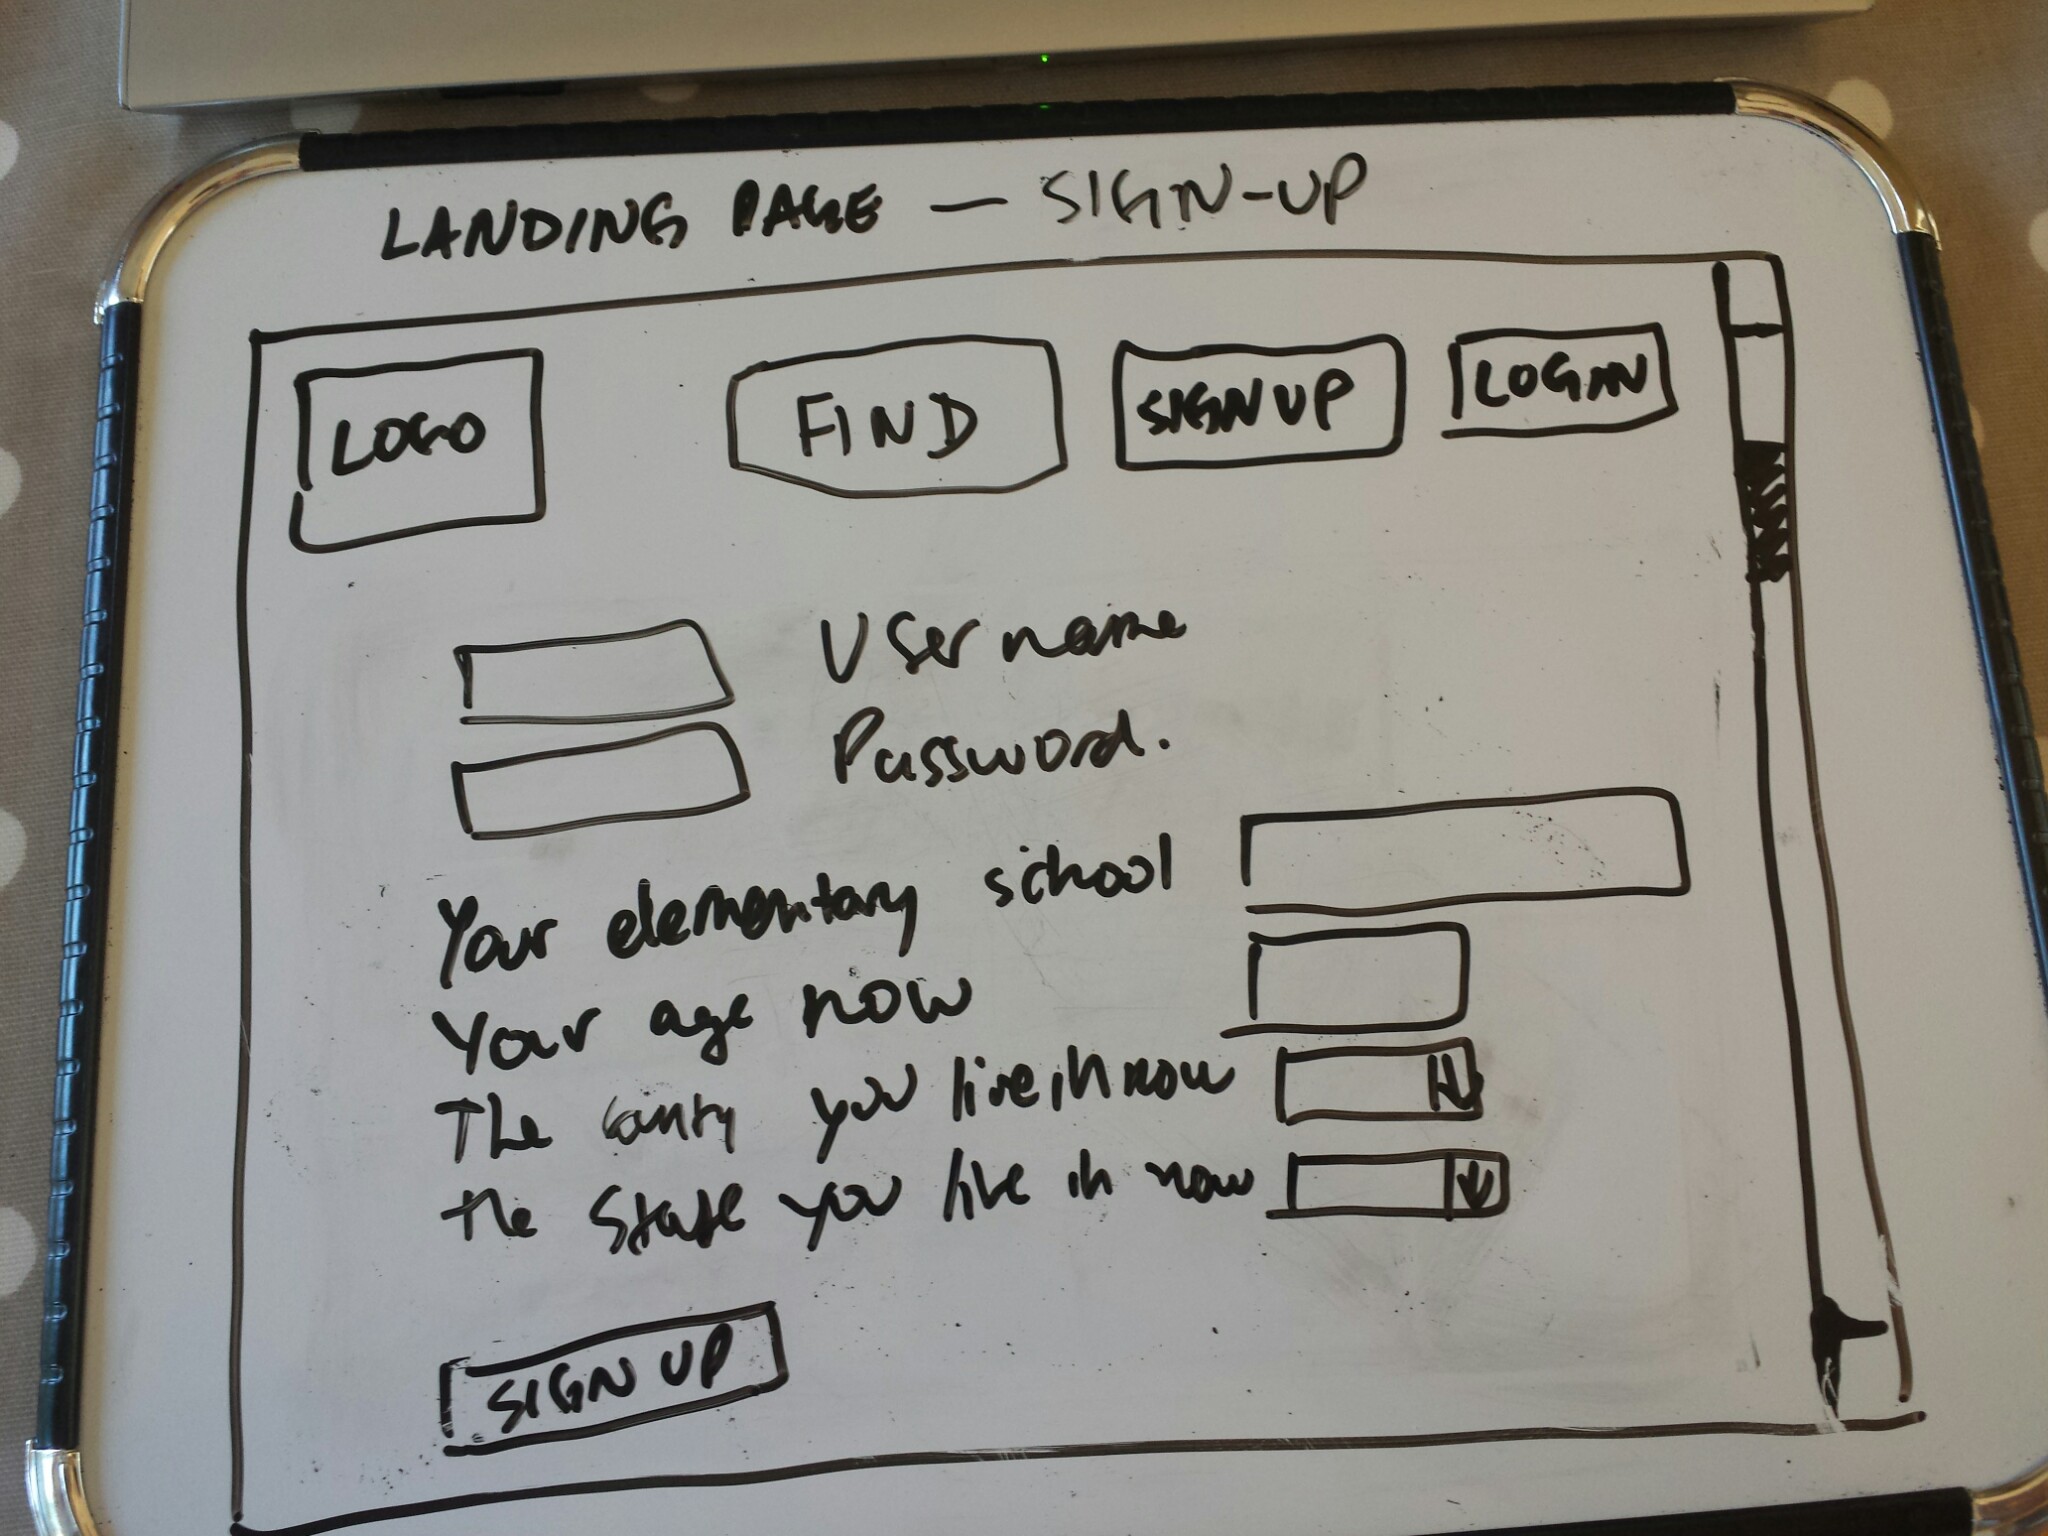 LANDING PAGE — SIGN-UP
LOGO
FIND
SIGN UP
LOGIN
Username
Password.
Your elementary school
Your age now
The county you live in now
the State you live in now
SIGN UP